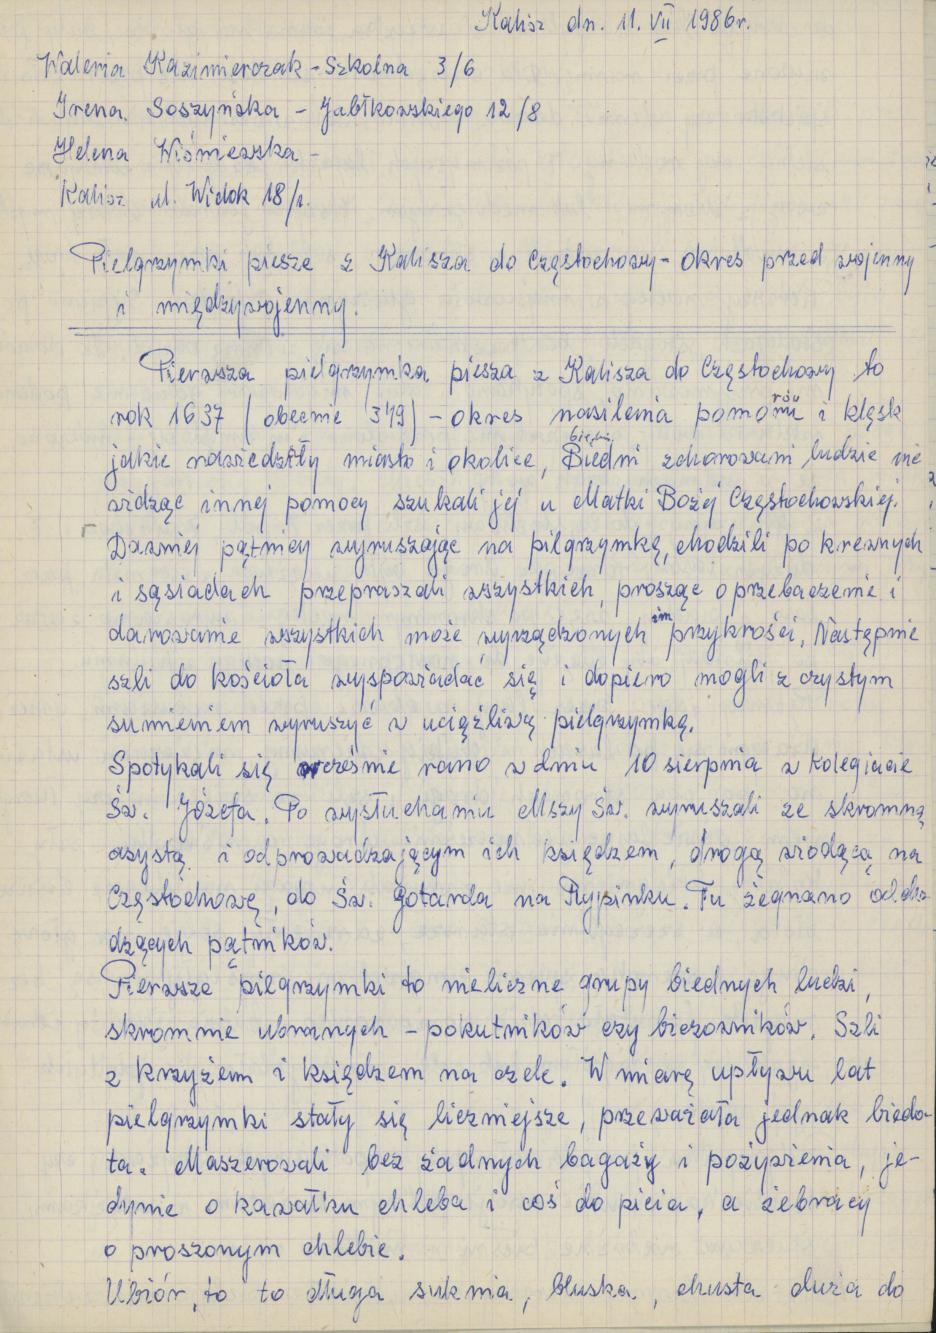 Kalisz dn. 11. VII 1986r.
Waleria Kazimierczak - Szkolna 3/6
Irena Soszyńska - Jabłkowskiego 12/8
Helena Wiśniewska -
Kalisz ul. Widok 18/1.
Pielgrzymki piesze z Kalisza do Częstochowy - okres przed wojenny
i międzywojenny.
Pierwsza pielgrzymka piesza z Kalisza do Częstochowy to
rok 1637 (obecnie 349) - okres nasilenia pomorów i klęsk
jakie nawiedziły miasto i okolice, Biedni schorowani ludzie nie
widząc innej pomocy szukali jej u Matki Bożej Częstochowskiej.
Dawniej pątnicy wyruszając na pilgrzymkę, chodzili po krewnych
i sąsiadach przepraszali wszystkich, prosząc o przebaczenie i
darowanie wszystkich może wyrządzonych im przykrości, Następnie
szli do kościoła wyspowiadać się i dopiero mogli z czystym
sumieniem wyruszyć w uciążliwą pielgrzymkę.
Spotykali się wcześnie rano w dniu 10 sierpnia w Kolegiacie
Św. Józefa. Po wysłuchaniu Mszy Św. wyruszali ze skromną
asystą i odprowadzającym ich księdzem, drogą wiodącą na
Częstochowę, do Św. Gotarda na Rypinku. Tu żegnano odcho-
dzących pątników.
Pierwsze pilgrzymki to nieliczne grupy biednych ludzi,
skromnie ubranych - pokutników czy biczowników. Szli
z krzyżem i księdzem na czele. W miarę upływu lat
pielgrzymki stały się liczniejsze, przeważała jednak biedo-
ta. Maszerowali bez żadnych bagaży i pożywienia, je-
dynie o kawałku chleba i coś do picia, a żebracy
o proszonym chlebie.
Ubiór, to to długa suknia, bluska, chusta duża do